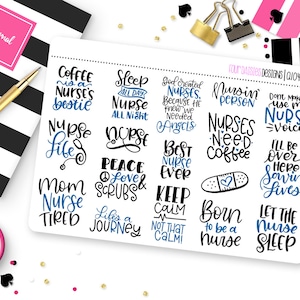 FOUR DAISIES DESIGNS
COFFEE
is a
NURSES
bestie
Sleep
ALL DAY
NURSE
ALL Night
God created
NURSES
Because He
knew we
Needed
Angels
Nursin'
PERSON
Don't make
me use my
NURSE
voice
Nurse
life
Nurse
Best
NURSE
EVER
NURSES
NEED
Coffee
I'll be
OVER
HERE
Saving
Lives
PEACE
Love &
SCRUBS
KEEP
CALM
NOT THAT
CALM!
Mom
NURSE
TIRED
Life's a
JOURNEY
Born
to be a
nurse
LET THE
NURSE
SLEEP